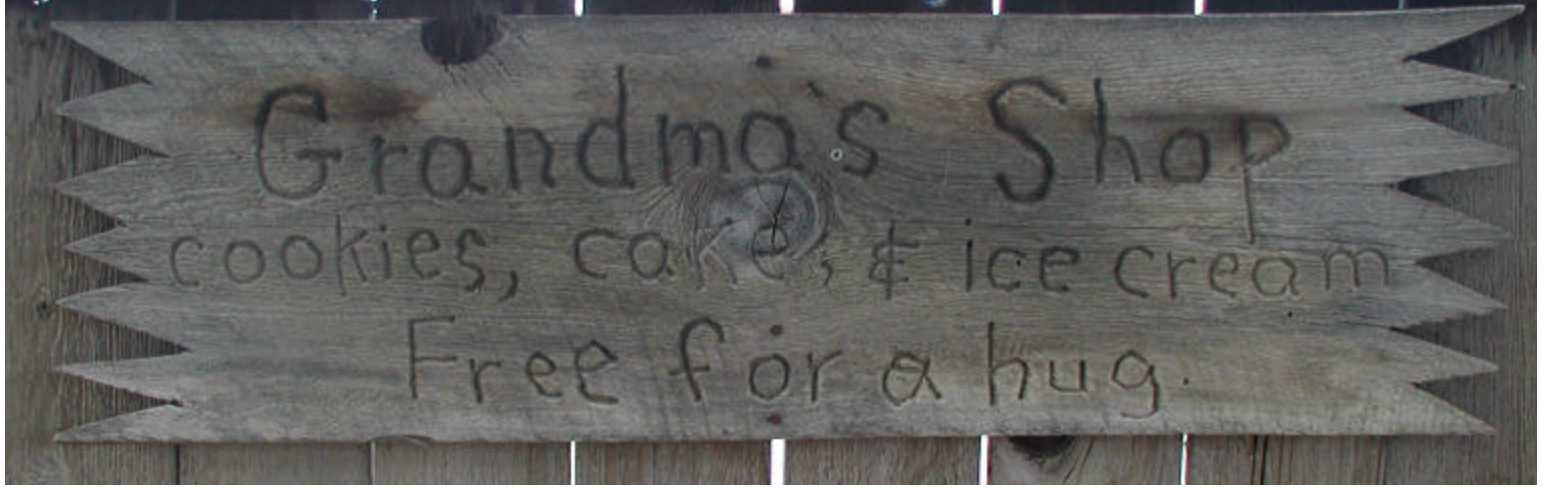 Grandma's Shop
cookies, cake, & ice cream
Free for a hug.